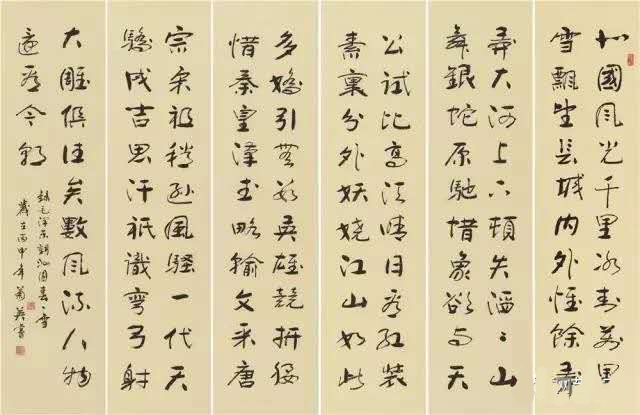 北國風光千里冰封萬里
雪飄望長城内外惟餘莽
莽大河上下頓失滔々山
舞銀蛇原馳蜡象欲與天
公試比高須晴日看紅裝
素裹分外妖嬈江山如此
多嬌引無數英雄競折腰
惜秦皇漢武略輸文采唐
宗宋祖稍遜風騷一代天
驕成吉思汗祇識彎弓射
大雕俱往矣數風流人物
還看今朝
録毛澤東詞沁園春雪
歲在丙申年菊英書